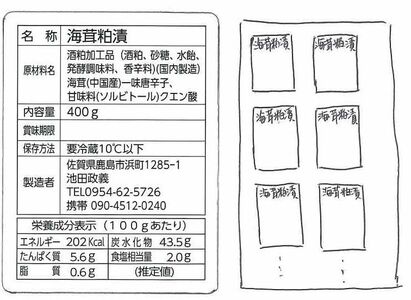 名称 海茸粕漬
原材料名 酒粕加工品（酒粕、砂糖、水飴、
発酵調味料、香辛料)(国内製造)
海茸(中国産)一味唐辛子、
甘味料(ソルビトール)クエン酸
内容量 400g
賞味期限
保存方法 要冷蔵10℃以下
製造者 佐賀県鹿島市浜町1285-1
池田政義
TEL0954-62-5726
携帯 090-4512-0240
栄養成分表示（100gあたり）
エネルギー 202Kcal 炭水化物 43.5g
たんぱく質 5.6g 食塩相当量 2.0g
脂質 0.6g (推定値)
海茸粕漬 海茸粕漬
海茸粕漬 海茸粕漬
海茸粕漬 海茸粕漬